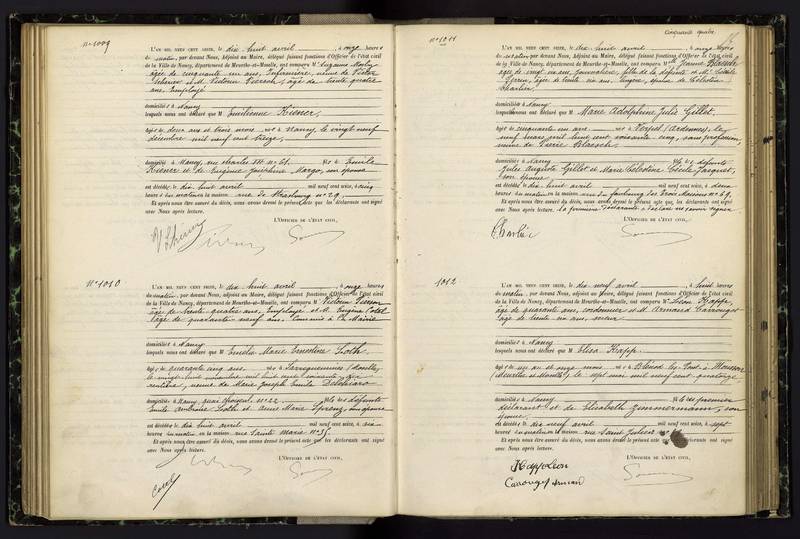 N° 1009
L'AN MIL NEUF CENT SEIZE, le dix huit avril, à onze heures
du matin, par devant Nous, Adjoint au Maire, délégué faisant fonctions d'Officier de l'état civil
de la Ville de Nancy, département de Meurthe-et-Moselle, ont comparu M Suzanne
âgée de cinquante un ans, Infirmière, veuve de Victor
et M. Victorin, âgé de trente quatre
ans, Employé
domiciliés à Nancy
lesquels nous ont déclaré que M Emilienne Kiener,
âgée de deux ans et trois mois, née à Nancy, le vingt neuf
décembre mil neuf cent treize,
domiciliée à Nancy, rue Charles III n° 61, fille de Emile
Kiener et de Eugénie Joséphine Margo, son épouse
est décédée, le dix huit avril mil neuf cent seize, à cinq
heures du matin en la maison rue de Strasbourg n° 29,
Et après nous être assuré du décès, nous avons dressé le présent acte que les déclarants ont signé
avec Nous après lecture.
L'OFFICIER DE L'ÉTAT CIVIL,
N° 1010
L'AN MIL NEUF CENT SEIZE, le dix huit avril, à onze heures
du matin, par devant Nous, Adjoint au Maire, délégué faisant fonctions d'Officier de l'état civil
de la Ville de Nancy, département de Meurthe-et-Moselle, ont comparu M Victorin
âgé de trente quatre ans, Employé et M. Eugène Colet
âgé de quarante neuf ans, Commis à la Mairie
domiciliés à Nancy
lesquels nous ont déclaré que M Emilie Marie Ernestine Loth,
âgée de quarante cinq ans, née à Sarreguemines (Moselle)
le vingt huit novembre mil huit cent soixante dix
rentière, veuve de Marie Joseph Emile
domiciliée à Nancy, quai Choiseul n° 22 fille des défunts
Emile Ambroise Loth et Anne Marie Sprenz, son épouse
est décédée, le dix huit avril mil neuf cent seize, à six
heures du matin, en la maison rue Sainte Marie n° 35
Et après nous être assuré du décès, nous avons dressé le présent acte que les déclarants ont signé
avec Nous après lecture.
L'OFFICIER DE L'ÉTAT CIVIL,
Colet
Cinquante quatre
N° 1011
L'AN MIL NEUF CENT SEIZE, le dix huit avril, à onze heures
du matin, par devant Nous, Adjoint au Maire, délégué faisant fonctions d'Officier de l'état civil
de la Ville de Nancy, département de Meurthe-et-Moselle, ont comparu M Jeanne
âgée de vingt six ans, journalière, fille de la défunte et M
ans, épouse de Célestin
Charlier
domiciliés à Nancy
lesquels nous ont déclaré que M Marie Adolphine Julie Gillet,
âgée de cinquante un ans née à Verpel (Ardennes), le
neuf mars mil huit cent soixante cinq, sans profession,
veuve de Pierre
domiciliée à Nancy fille des défunts
Jules Auguste Gillet et Marie Célestine Cécile Jacquet,
son épouse
est décédée, le dix huit avril mil neuf cent seize, à deux
heures du matin, en la maison rue du faubourg des Trois Maisons n° 69
Et après nous être assuré du décès, nous avons dressé le présent acte que les déclarants ont signé
avec Nous après lecture. La première déclarante a déclaré ne savoir signer
L'OFFICIER DE L'ÉTAT CIVIL,
Charlier
1012
L'AN MIL NEUF CENT SEIZE, le dix neuf avril, à huit heures
du matin, par devant Nous, Adjoint au Maire, délégué faisant fonctions d'Officier de l'état civil
de la Ville de Nancy, département de Meurthe-et-Moselle, ont comparu M Léon Kapp,
âgé de quarante ans, cordonnier et M. Armand Carrouget
âgé de trente six ans,
domiciliés à Nancy
lesquels nous ont déclaré que M Elisa Kapp,
âgée de un an et onze mois née à Blénod les Pont à Mousson
(Meurthe et Moselle) le sept mai mil neuf cent quatorze,
domiciliée à Nancy fille du premier
déclarant et de Elisabeth Zimmermann, son
épouse
est décédée, le dix neuf avril mil neuf cent seize, à sept
heures du matin, en la maison rue Saint Julien n°
Et après nous être assuré du décès, nous avons dressé le présent acte que les déclarants ont signé
avec Nous après lecture.
L'OFFICIER DE L'ÉTAT CIVIL,
Kapp Léon
Carrouget Armand